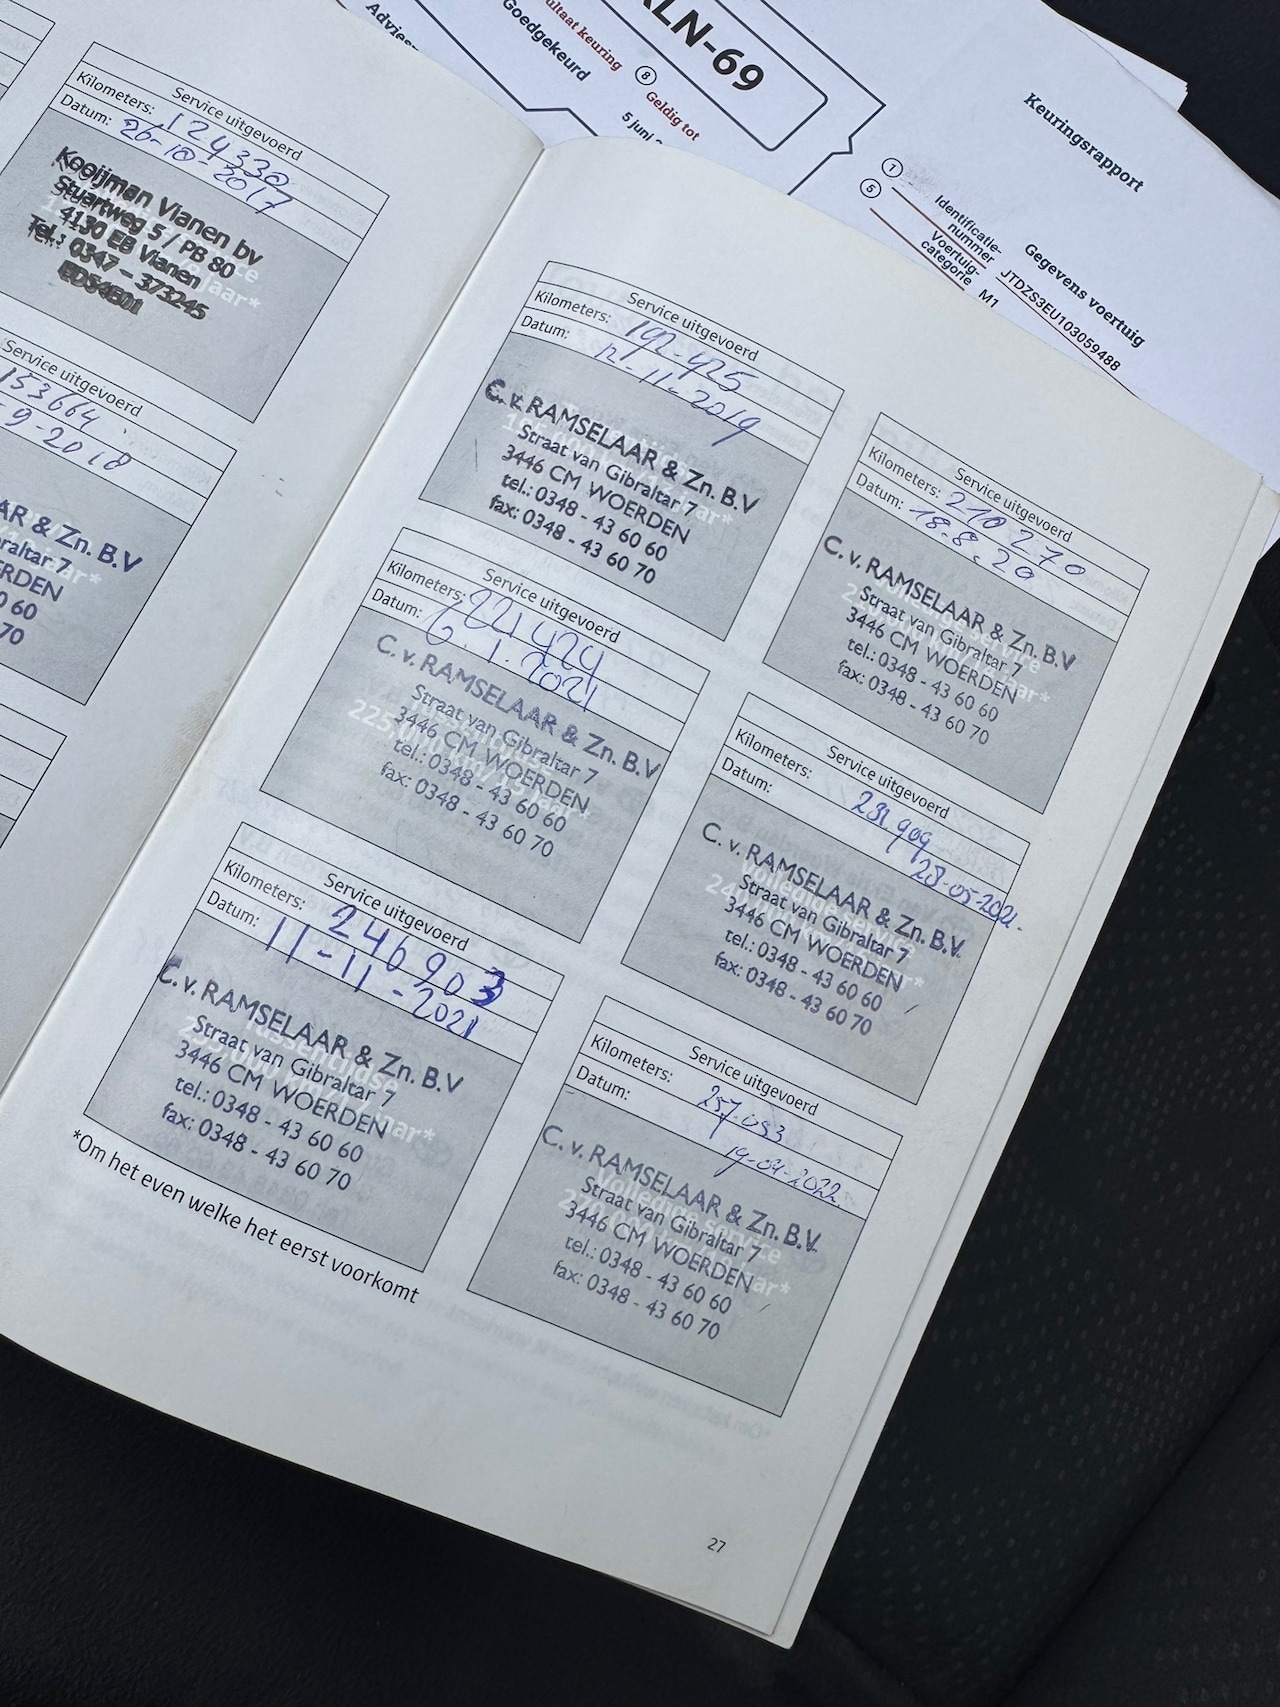 Service uitgevoerd
Kilometers: 124330
Datum: 26-10-2017
Kooijman Vianen bv
Stuartweg 5 / PB 80
4130 EB Vianen
Tel.: 0347 - 373245
Service uitgevoerd
153664
-9-2018
AR & Zn. B.V
braltar 7
ERDEN
0 60
70
Service uitgevoerd
Kilometers: 192-425
Datum: 12-11-2019
C. v. RAMSELAAR & Zn. B.V
Straat van Gibraltar 7
3446 CM WOERDEN
tel.: 0348 - 43 60 60
fax: 0348 - 43 60 70
Service uitgevoerd
Kilometers: 210270
Datum: 18.8.20
C. v. RAMSELAAR & Zn. B.V
Straat van Gibraltar 7
3446 CM WOERDEN
tel.: 0348 - 43 60 60
fax: 0348 - 43 60 70
Service uitgevoerd
Kilometers: 221424
Datum: 6.1.2021
C. v. RAMSELAAR & Zn. B.V
Straat van Gibraltar 7
3446 CM WOERDEN
tel.: 0348 - 43 60 60
fax: 0348 - 43 60 70
Service uitgevoerd
Kilometers: 231909
Datum: 28-05-2021.
C. v. RAMSELAAR & Zn. B.V.
Straat van Gibraltar 7
3446 CM WOERDEN
tel.: 0348 - 43 60 60
fax: 0348 - 43 60 70
Service uitgevoerd
Kilometers: 246903
Datum: 11-11-2021
C. v. RAMSELAAR & Zn. B.V
Straat van Gibraltar 7
3446 CM WOERDEN
tel.: 0348 - 43 60 60
fax: 0348 - 43 60 70
Service uitgevoerd
Kilometers: 257.053
Datum: 19-04-2022
C. v. RAMSELAAR & Zn. B.V.
Straat van Gibraltar 7
3446 CM WOERDEN
tel.: 0348 - 43 60 60
fax: 0348 - 43 60 70
*Om het even welke het eerst voorkomt
27
LN-69
ultaat keuring
Goedgekeurd
Advies
8
Geldig tot
5 juni
Keuringsrapport
Gegevens voertuig
1 Identificatie-
nummer JTDZS3EU103059488
5 Voertuig-
categorie M1